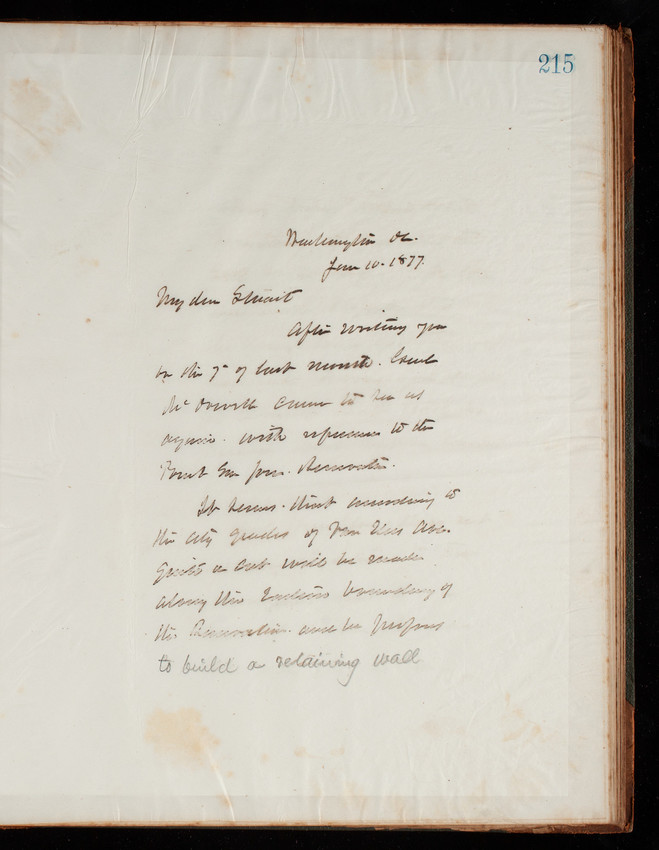 215
Washington DC.
Jan 10. 1877.
My dear Stuart
After writing you
on the 7" of last month.
Mc Dowell came to see us
again. with reference to the
Point San Jose. Reservation.
It seems. that according to
the city grades of Van Ness Ave.
Quite a cut will be made
along the Eastern boundary of
the Reservation. and he proposes
to build a retaining wall